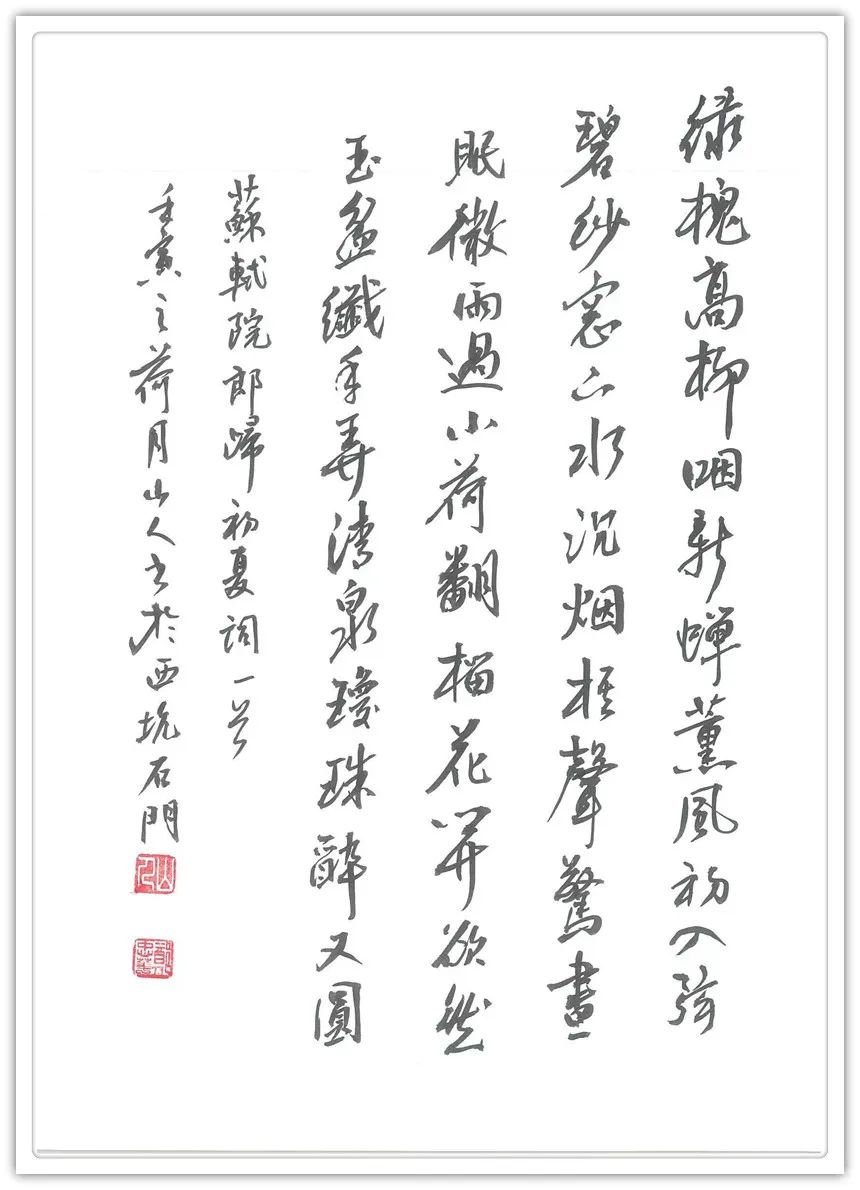 緑槐高柳咽新蟬薰風初入弦
碧紗窓下水沉烟棋聲驚晝
眠微雨過小荷翻榴花開欲然
玉盆纖手弄清泉瓊珠醉又圓
蘇軾院郎歸初夏詞一首
壬寅之荷月山人书於西坑石門
山人